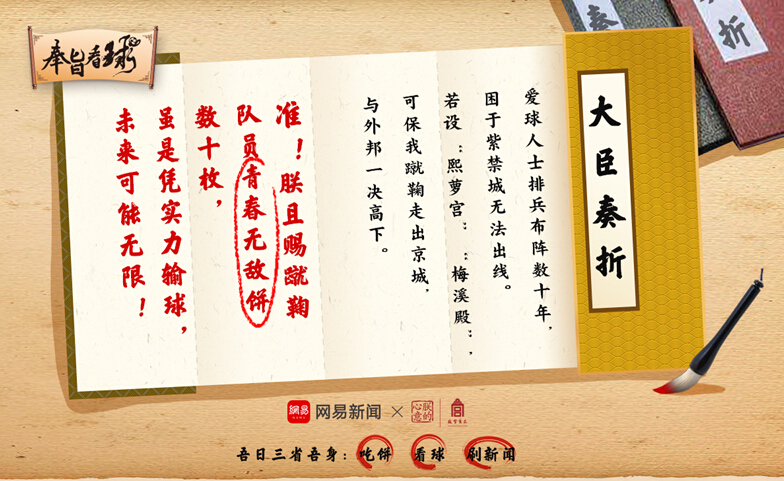 奉旨看球
奏
折
大臣奏折
爱球人士排兵布阵数十年，
困于紫禁城无法出线。
若设：熙萝宫”，“梅溪殿”，
可保我蹴鞠走出京城，
与外邦一决高下。
准！朕且赐蹴鞠
队员青春无敌饼
数十枚，
虽是凭实力输球，
未来可能无限！
網易
网易新闻
×
朕的心意
宫
故宫食品
吾日三省吾身：吃饼 看球 刷新闻